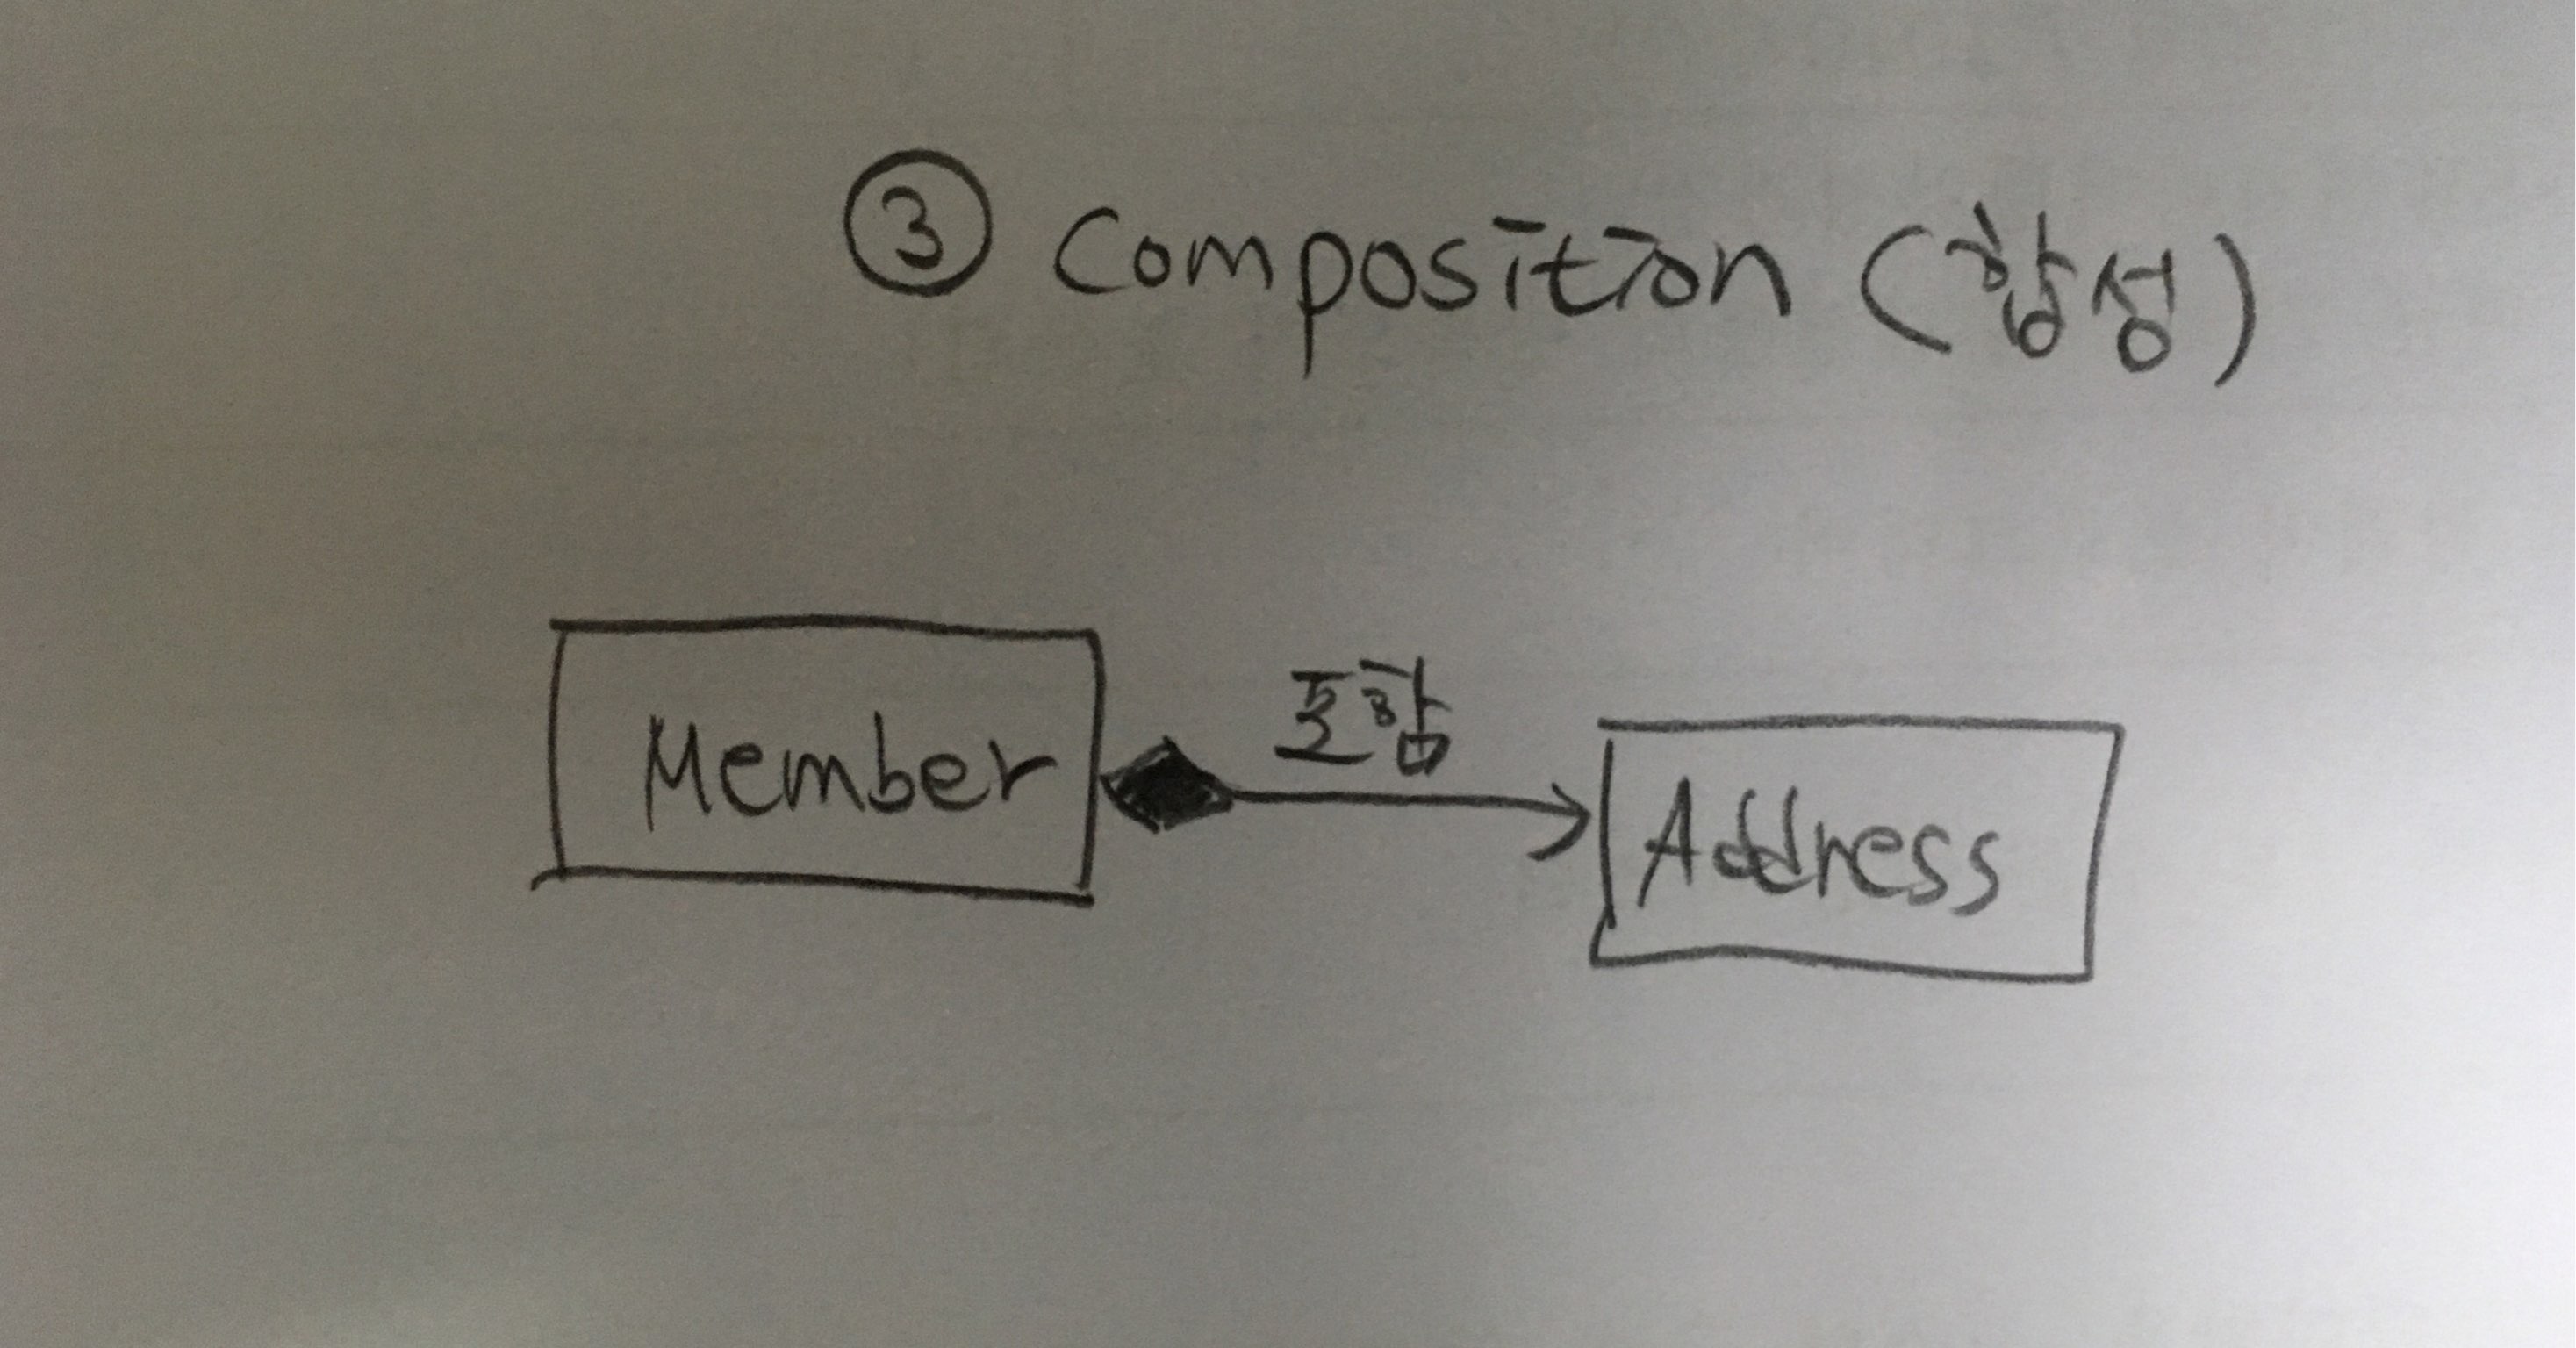 ③ Composition (합성)
Member
포함
Address